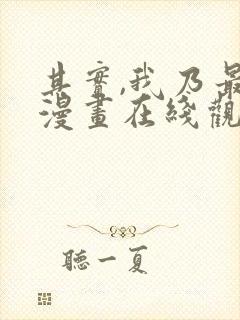 其實,我乃最
漫畫在綫觀
聽一夏